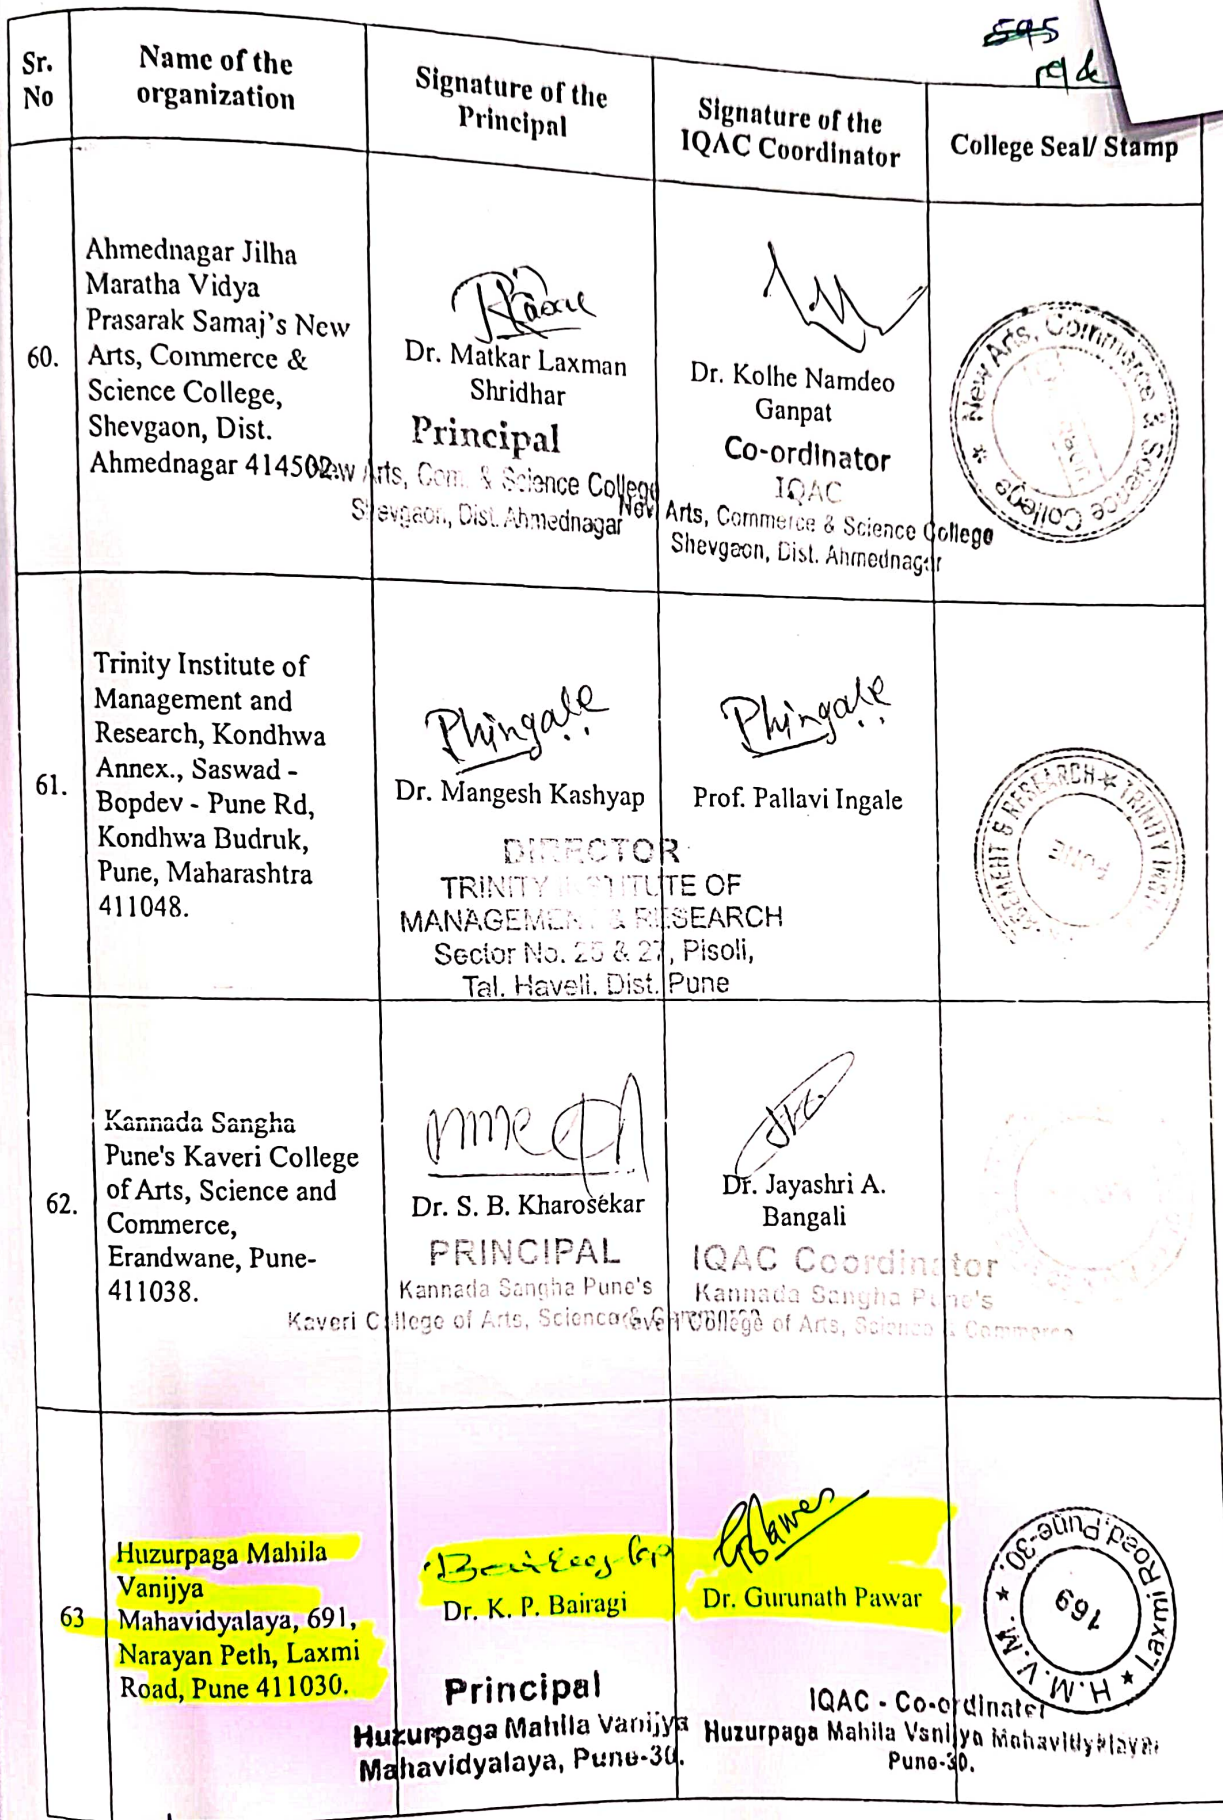 Sr.
No
Name of the
organization
Signature of the
Principal
Signature of the
IQAC Coordinator
College Seal/ Stamp
60.
Ahmednagar Jilha
Maratha Vidya
Prasarak Samaj's New
Arts, Commerce &
Science College,
Shevgaon, Dist.
Ahmednagar 414502.
Dr. Matkar Laxman
Shridhar
Principal
New Arts, Com. & Science College
Shevgaon, Dist. Ahmednagar
Dr. Kolhe Namdeo
Ganpat
Co-ordinator
IQAC
New Arts, Commerce & Science College
Shevgaon, Dist. Ahmednagar
New Arts, Commerce & Science College
61.
Trinity Institute of
Management and
Research, Kondhwa
Annex., Saswad -
Bopdev - Pune Rd,
Kondhwa Budruk,
Pune, Maharashtra
411048.
Phingale
Dr. Mangesh Kashyap
DIRECTOR
TRINITY INSTITUTE OF
MANAGEMENT & RESEARCH
Sector No. 25 & 27, Pisoli,
Tal. Haveli. Dist. Pune
Phingale
Prof. Pallavi Ingale
& RESEARCH TRINITY
PUNE
62.
Kannada Sangha
Pune's Kaveri College
of Arts, Science and
Commerce,
Erandwane, Pune-
411038.
Dr. S. B. Kharosekar
PRINCIPAL
Kannada Sangha Pune's
Kaveri College of Arts, Science & Commerce
Dr. Jayashri A.
Bangali
IQAC Coordinator
Kannada Sangha Pune's
Kaveri College of Arts, Science & Commerce
63
Huzurpaga Mahila
Vanijya
Mahavidyalaya, 691,
Narayan Peth, Laxmi
Road, Pune 411030.
Dr. K. P. Bairagi
Principal
Huzurpaga Mahila Vanijya
Mahavidyalaya, Pune-30.
Dr. Gurunath Pawar
IQAC - Co-ordinator
Huzurpaga Mahila Vanijya Mahavidyalaya
Pune-30.
H.M.V.M. * Laxmi Road, Pune-30. *
691